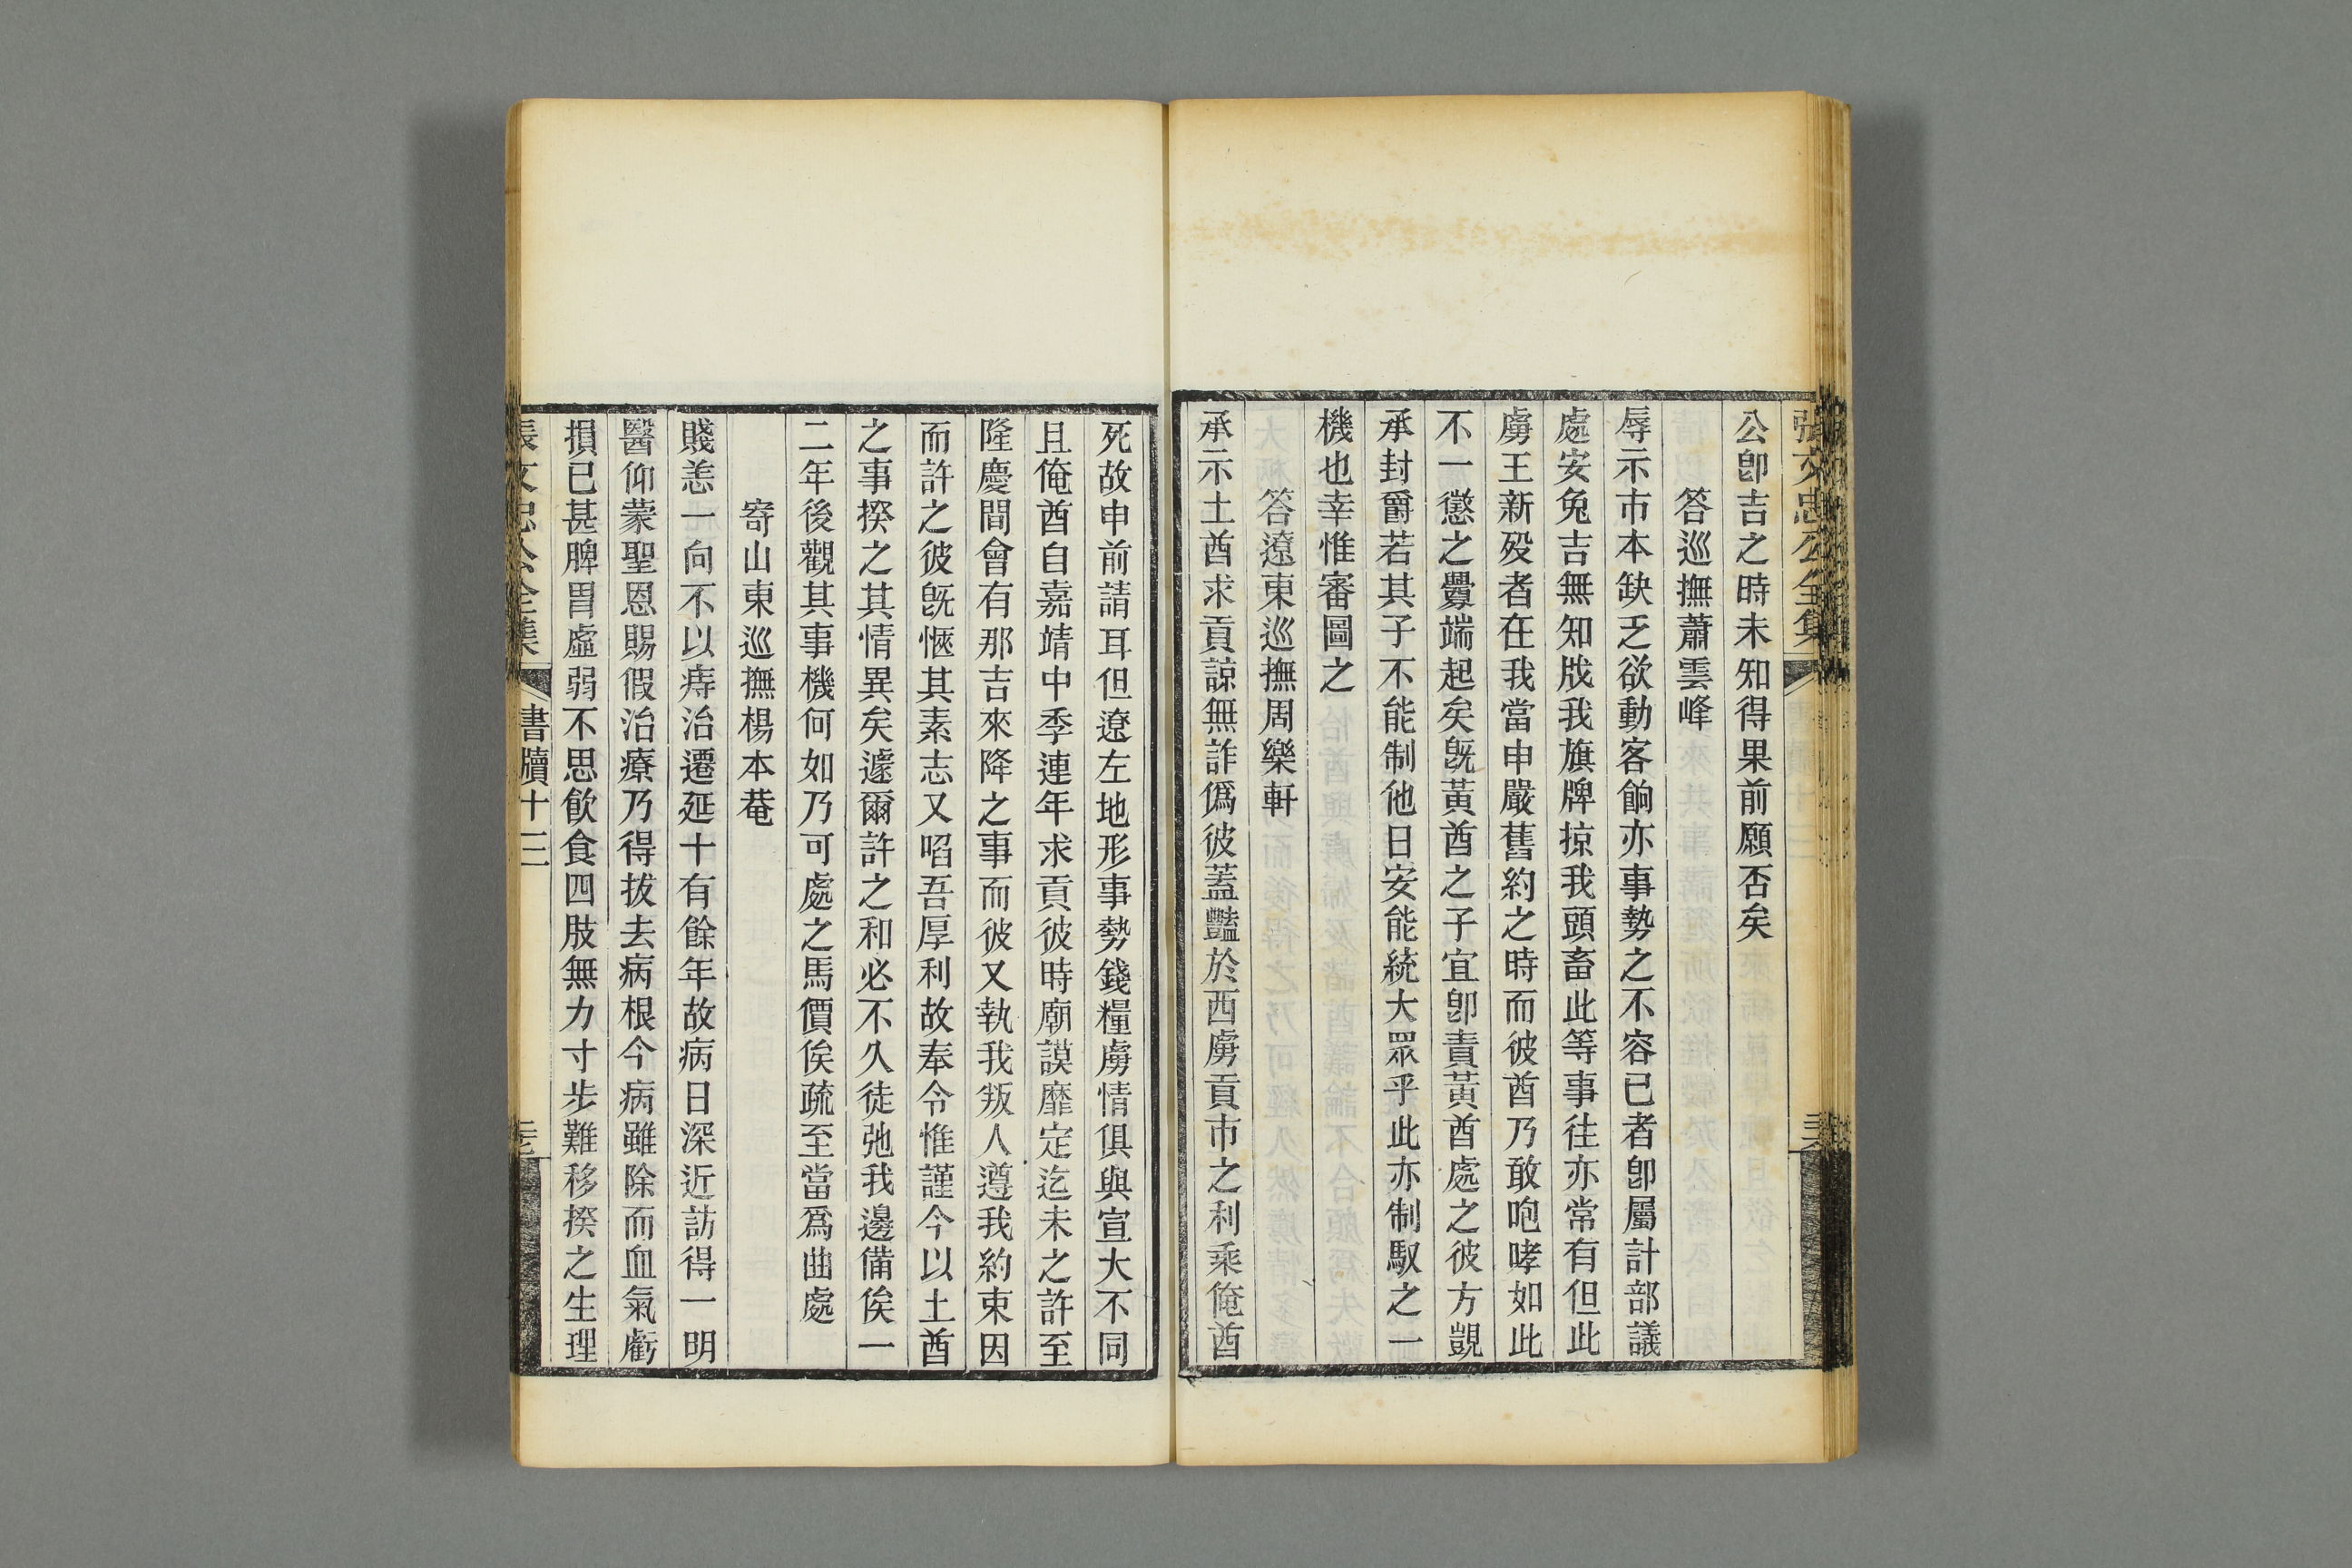 張文忠公全集
公卽吉之時未知得果前願否矣
答巡撫蕭雲峰
辱示市本缺乏欲動客餉亦事勢之不容已者卽屬計部議
處安兔吉無知戕我旗牌掠我頭畜此等事徃亦常有但此
虜王新歿者在我當申嚴舊約之時而彼酋乃敢咆哮如此
不一懲之釁端起矣旣黃酋之子宜卽責黃酋處之彼方覬
承封爵若其子不能制他日安能統大眾乎此亦制馭之一
機也幸惟審圖之
答遼東巡撫周樂軒
承示土酋求貢諒無詐僞彼蓋豔於西虜貢市之利乘俺酋
死故申前請耳但遼左地形事勢錢糧虜情俱與宣大不同
且俺酋自嘉靖中季連年求貢彼時廟謨靡定迄未之許至
隆慶間會有那吉來降之事而彼又執我叛人遵我約束因
而許之彼旣愜其素志又啗吾厚利故奉令惟謹今以土酋
之事揆之其情異矣遽爾許之和必不久徒弛我邊備俟一
二年後觀其事機何如乃可處之馬價俟疏至當爲曲處
寄山東巡撫楊本菴
賤恙一向不以痔治遷延十有餘年故病日深近訪得一明
醫仰蒙聖恩賜假治療乃得拔去病根今病雖除而血氣虧
損已甚脾胃虛弱不思飮食四肢無力寸步難移揆之生理
張文忠公全集
書牘十三